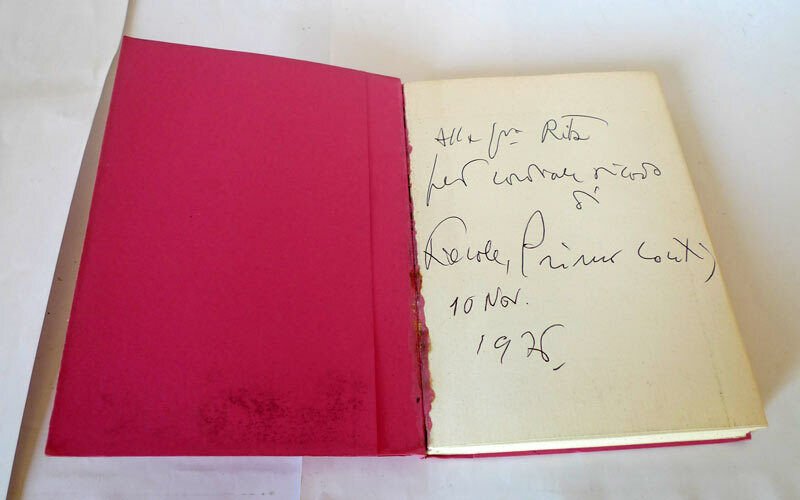 Alla Sra Rita
per cordiale ricordo
di
Fiesole, Primo Conti,
10 Nov.
1976